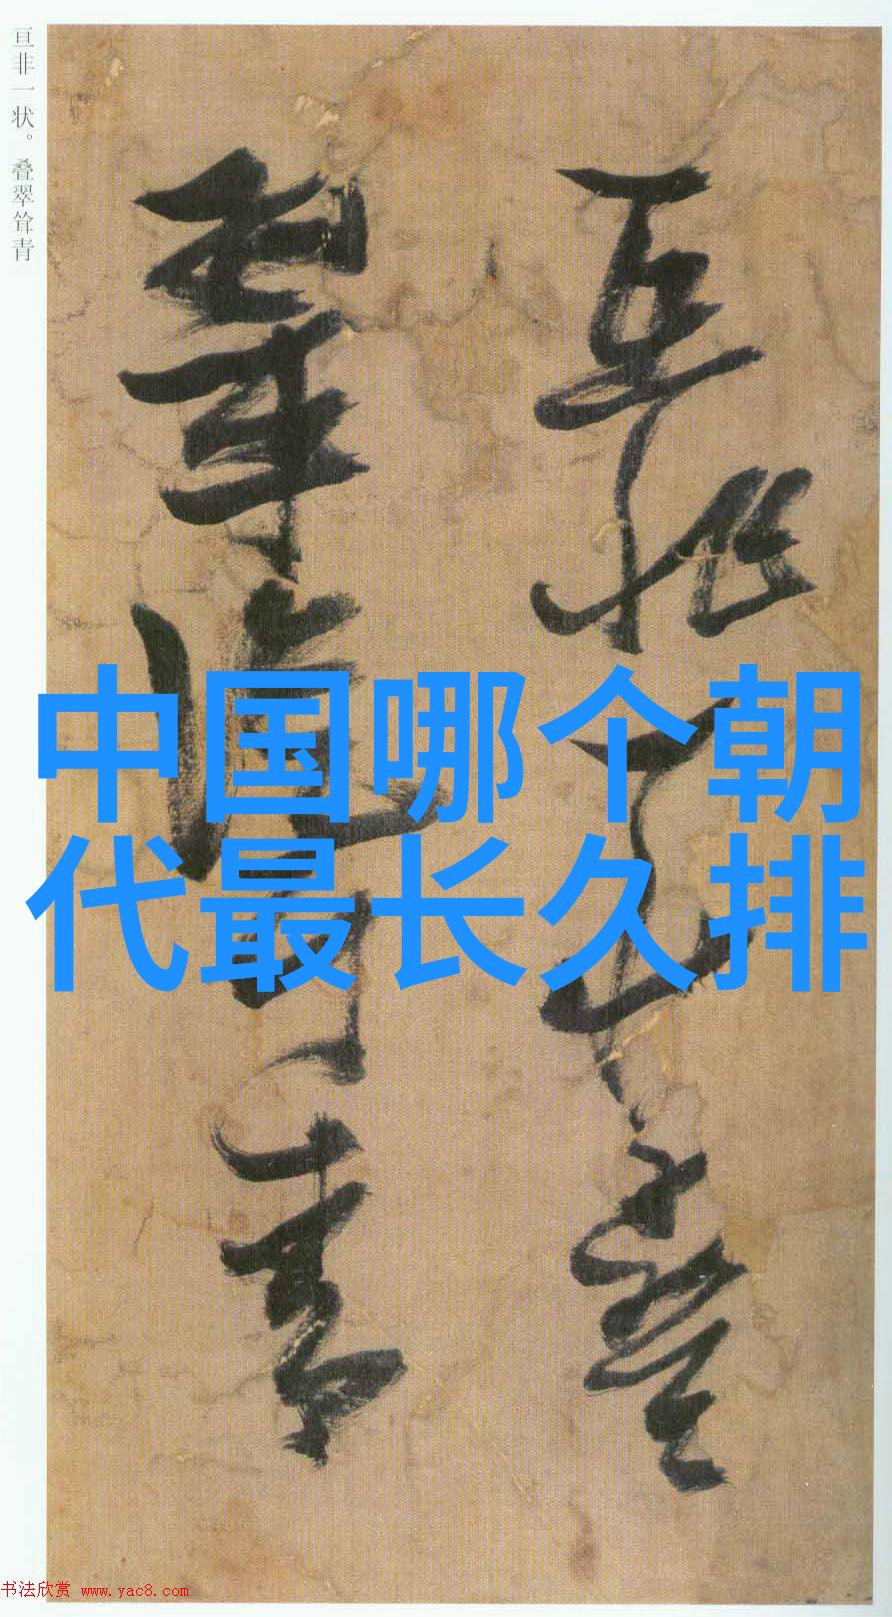 亘非一状。叠翠耸青
中国哪个朝
代最长久排
书法欣赏 www.yac8.com